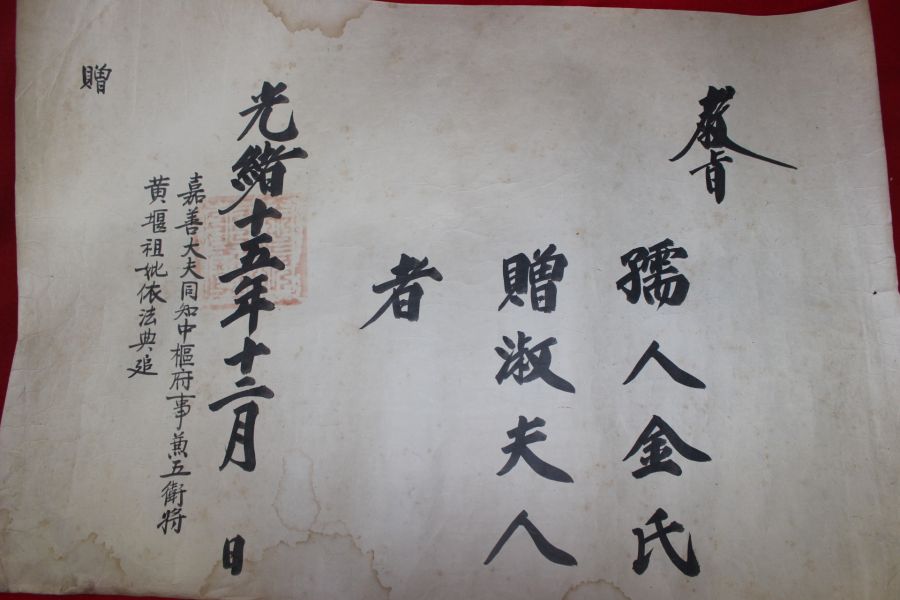 教旨
孺人金氏
贈淑夫人
者
光緖十五年十二月 日
嘉善大夫同知中樞府事兼五衛將
黄堰祖妣依法典追
贈